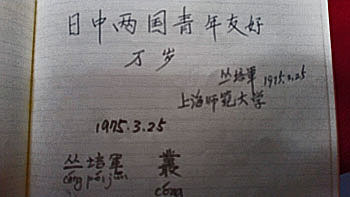 日中两国青年友好
万岁
丛培軍 1975.3.25
上海师范大学
1975.3.25
丛培軍 叢
cóng péi jūn cóng